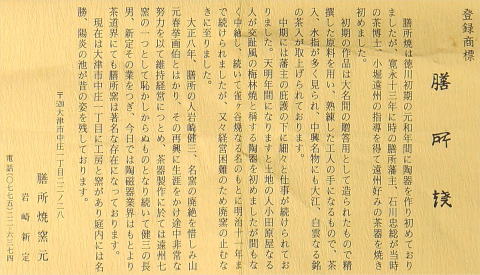 登録商標
膳所焼
膳所焼は徳川初期の元和年間に陶器を作り初めており
ましたが、寛永十三年に時の膳所藩主、石川忠総が当時
の茶博士、小堀遠州の指導を得て遠州好みの茶器を焼き
初めました。
初期の作品は大名間の贈答用として造られたもので精
撰した原料を用い、熟練した工人の手になるもので、茶
入、水指が多く見られ、中興名物にも大江、白雲なる銘
の茶入が取上げられております。
中期には藩主の庇護の下に細々と仕事が続けられてお
りました。天明年間になりますと土地の人小田原屋なる
人が交趾風の梅林焼と称する陶器を初めましたが間もな
く中絶し、続いて雀ヶ谷焼なる名のもとに明治十一年ま
で続けられましたが、又々経営困難のため廃窯の止むな
きに至りました。
大正八年、膳所の人岩崎健三、名窯の廃絶を惜しみ山
元春挙画伯とはかり、その再興に生涯をかけ途中非常な
努力を以て維持経営につとめ、茶器製作に於ては遠州七
窯の一つとして恥かしからぬものとなり続いて健三の長
男、新定その業をつぎ、今日では陶磁器業界はもとより
茶道界にても膳所窯は著名な存在になっております。
現在は大津市中庄一丁目に工房と窯があり庭内には名
勝、陽炎の池が昔の姿を残しております。
〒520大津市中庄一丁目二二ノ二八
膳所焼窯元
岩崎新定
電話〇七七五(二三)六三七四